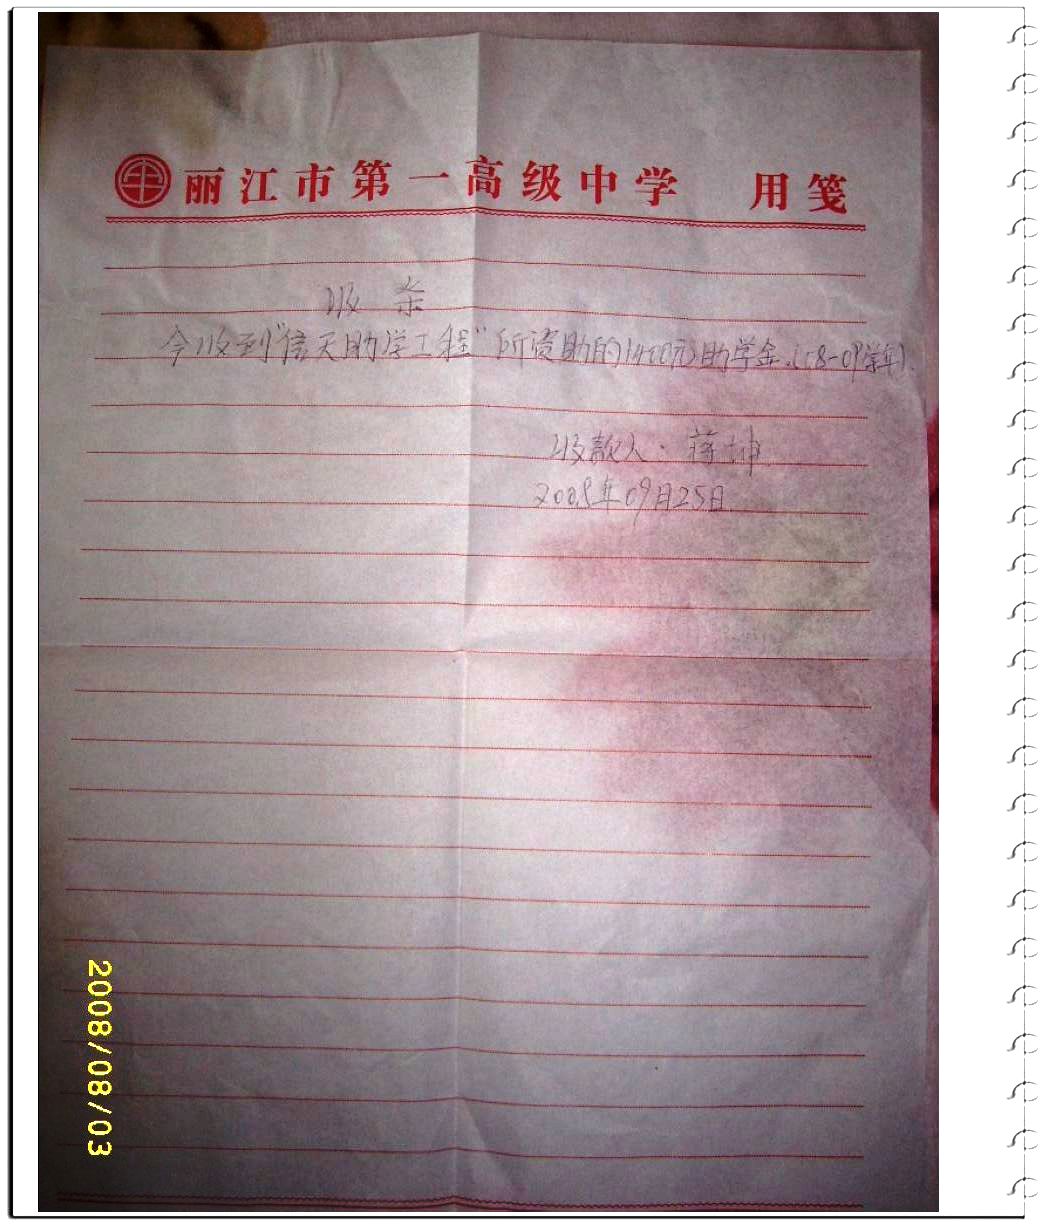 丽江市第一高级中学 用笺
收条
今收到"信天助学工程"所资助的1400元助学金.(08-09学年).
收款人: 蒋坤
2008年09月25日
2008/08/03